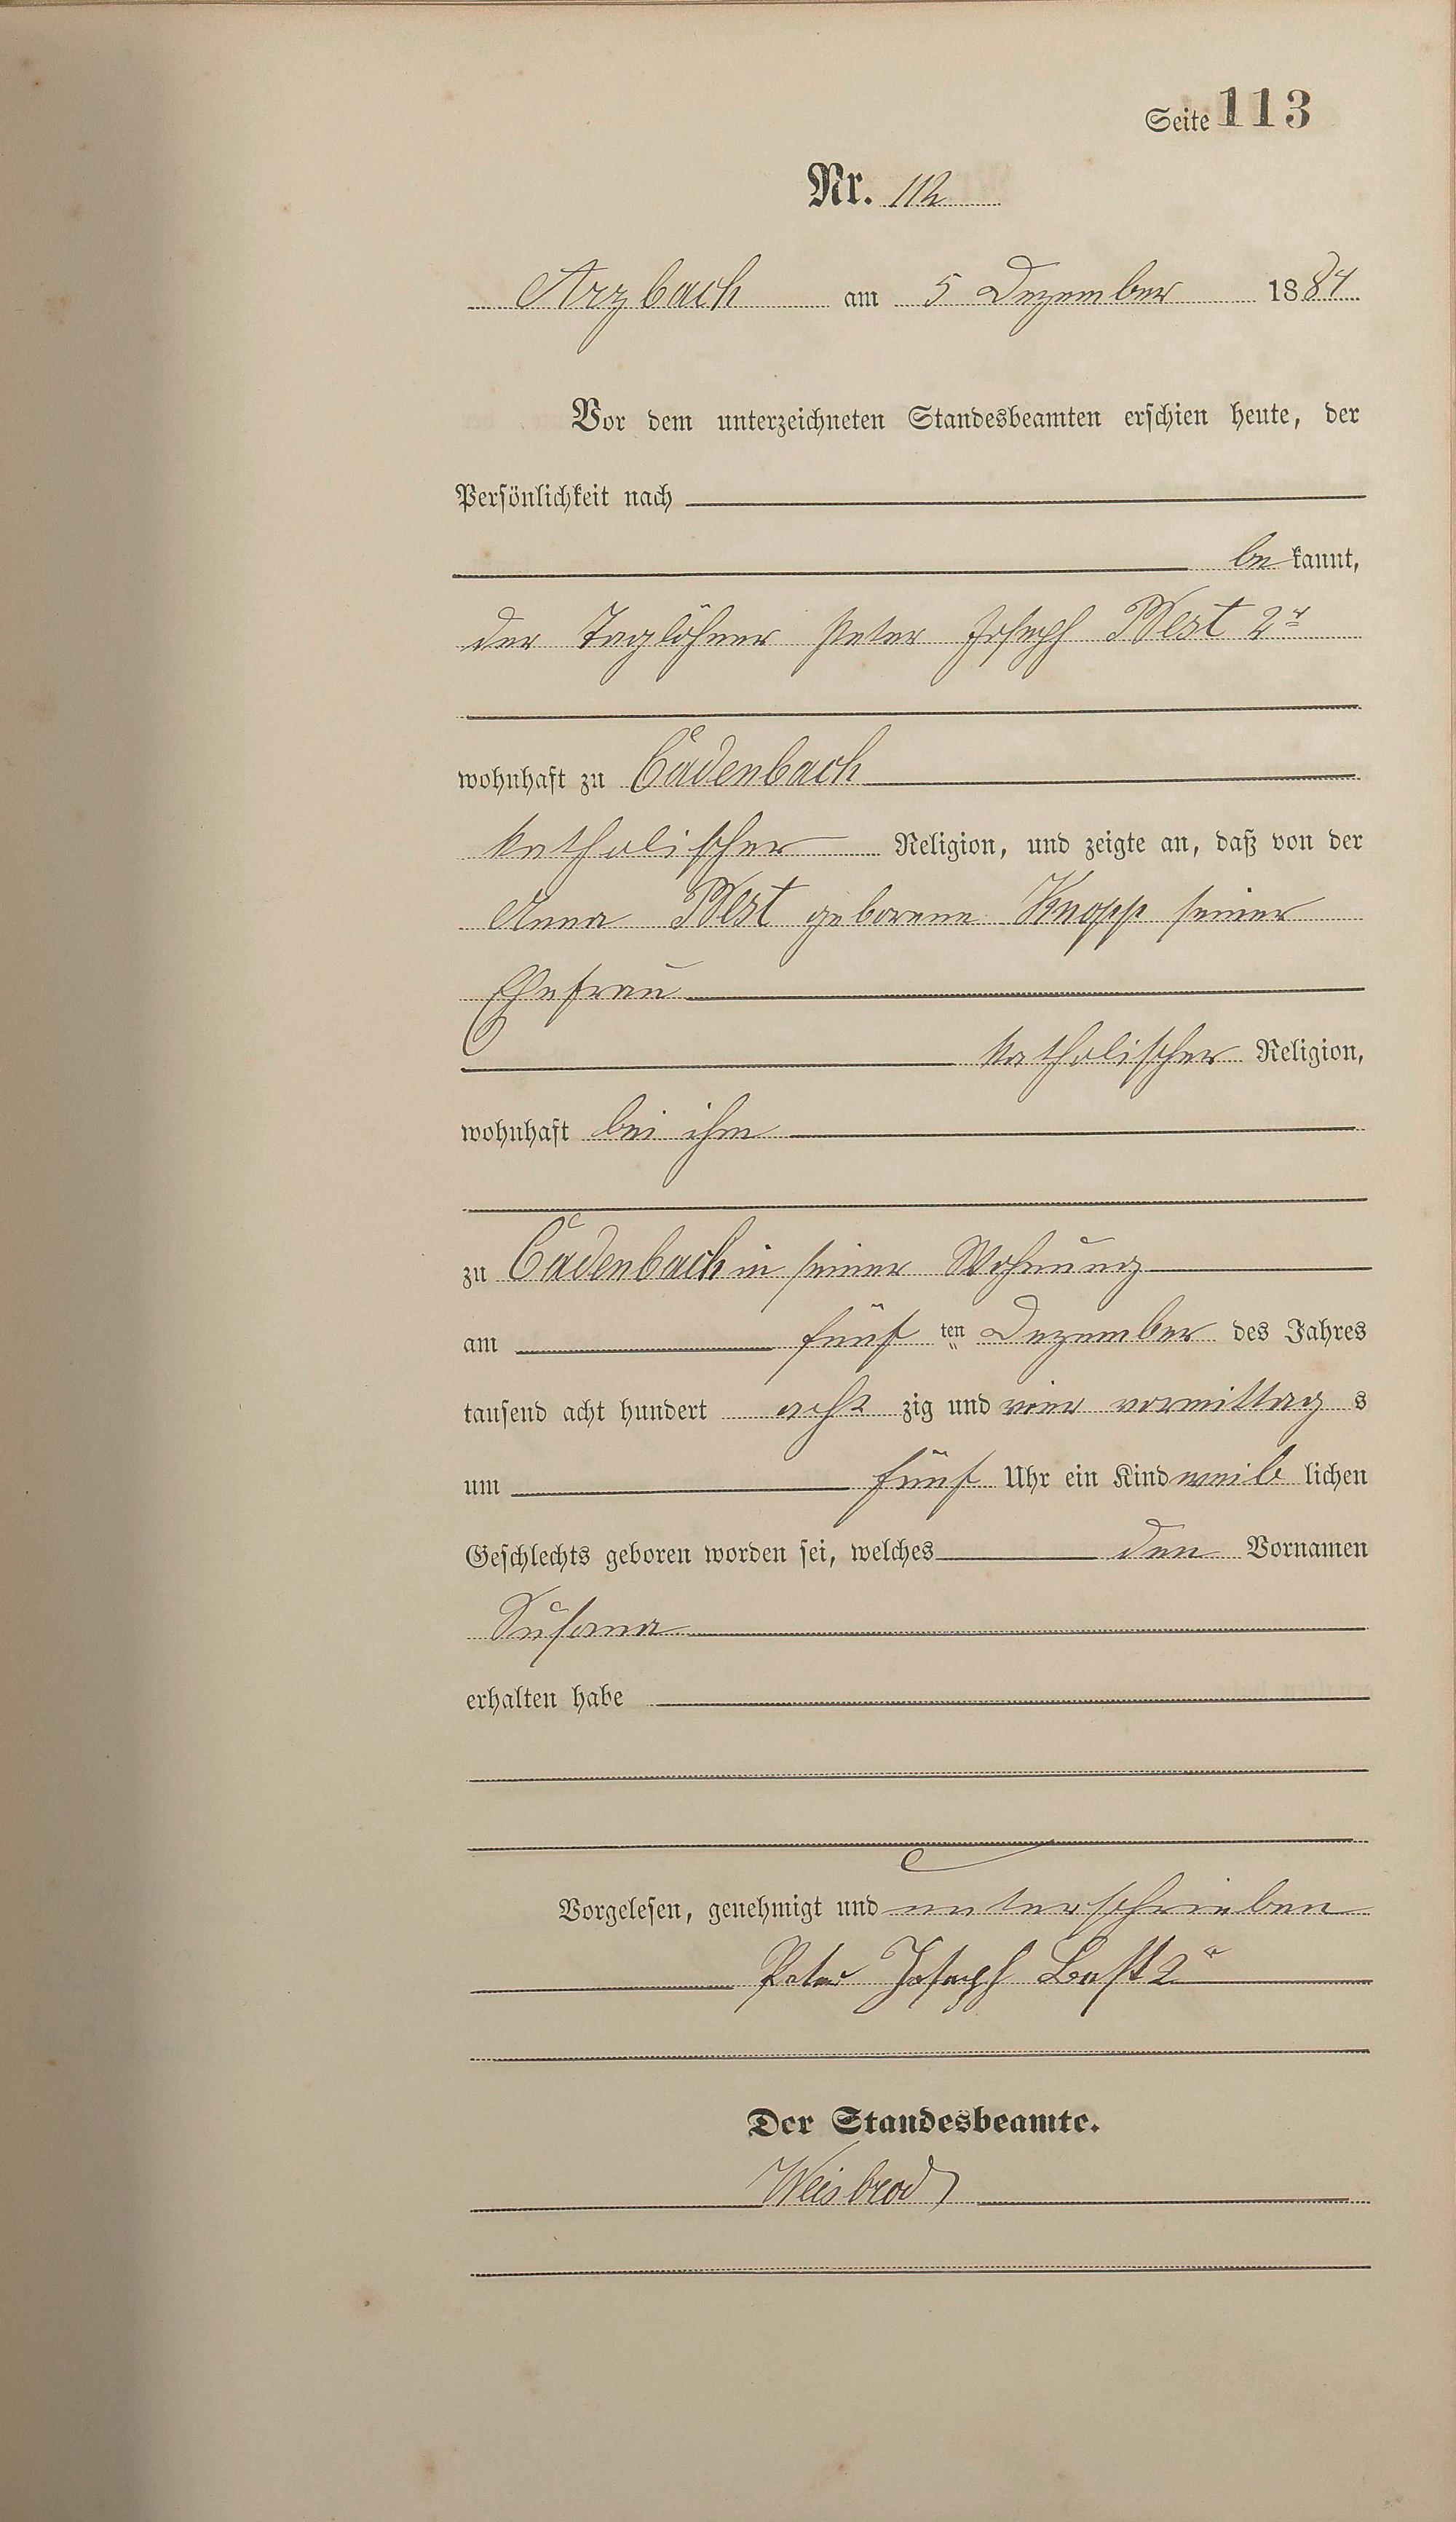 Seite 113
Nr. 112
Arzbach am 5 Dezember 1884
Vor dem unterzeichneten Standesbeamten erschien heute, der
Persönlichkeit nach
be kannt,
der Taglöhner Peter Joseph Best 2r
wohnhaft zu Cadenbach
katholischer Religion, und zeigte an, daß von der
Anna Best geborene Knopp seiner
Ehefrau
katholischer Religion,
wohnhaft bei ihm
zu Cadenbach in seiner Wohnung
am fünf ten Dezember des Jahres
tausend acht hundert acht zig und vier vormittag s
um fünf Uhr ein Kind weib lichen
Geschlechts geboren worden sei, welches den Vornamen
Susana
erhalten habe
Vorgelesen, genehmigt und unterschrieben
Peter Joseph Best 2r
Der Standesbeamte.
Weisbrod